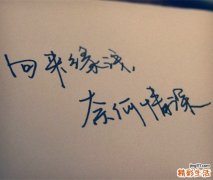 向来缘浅，
奈何情深
精彩生活